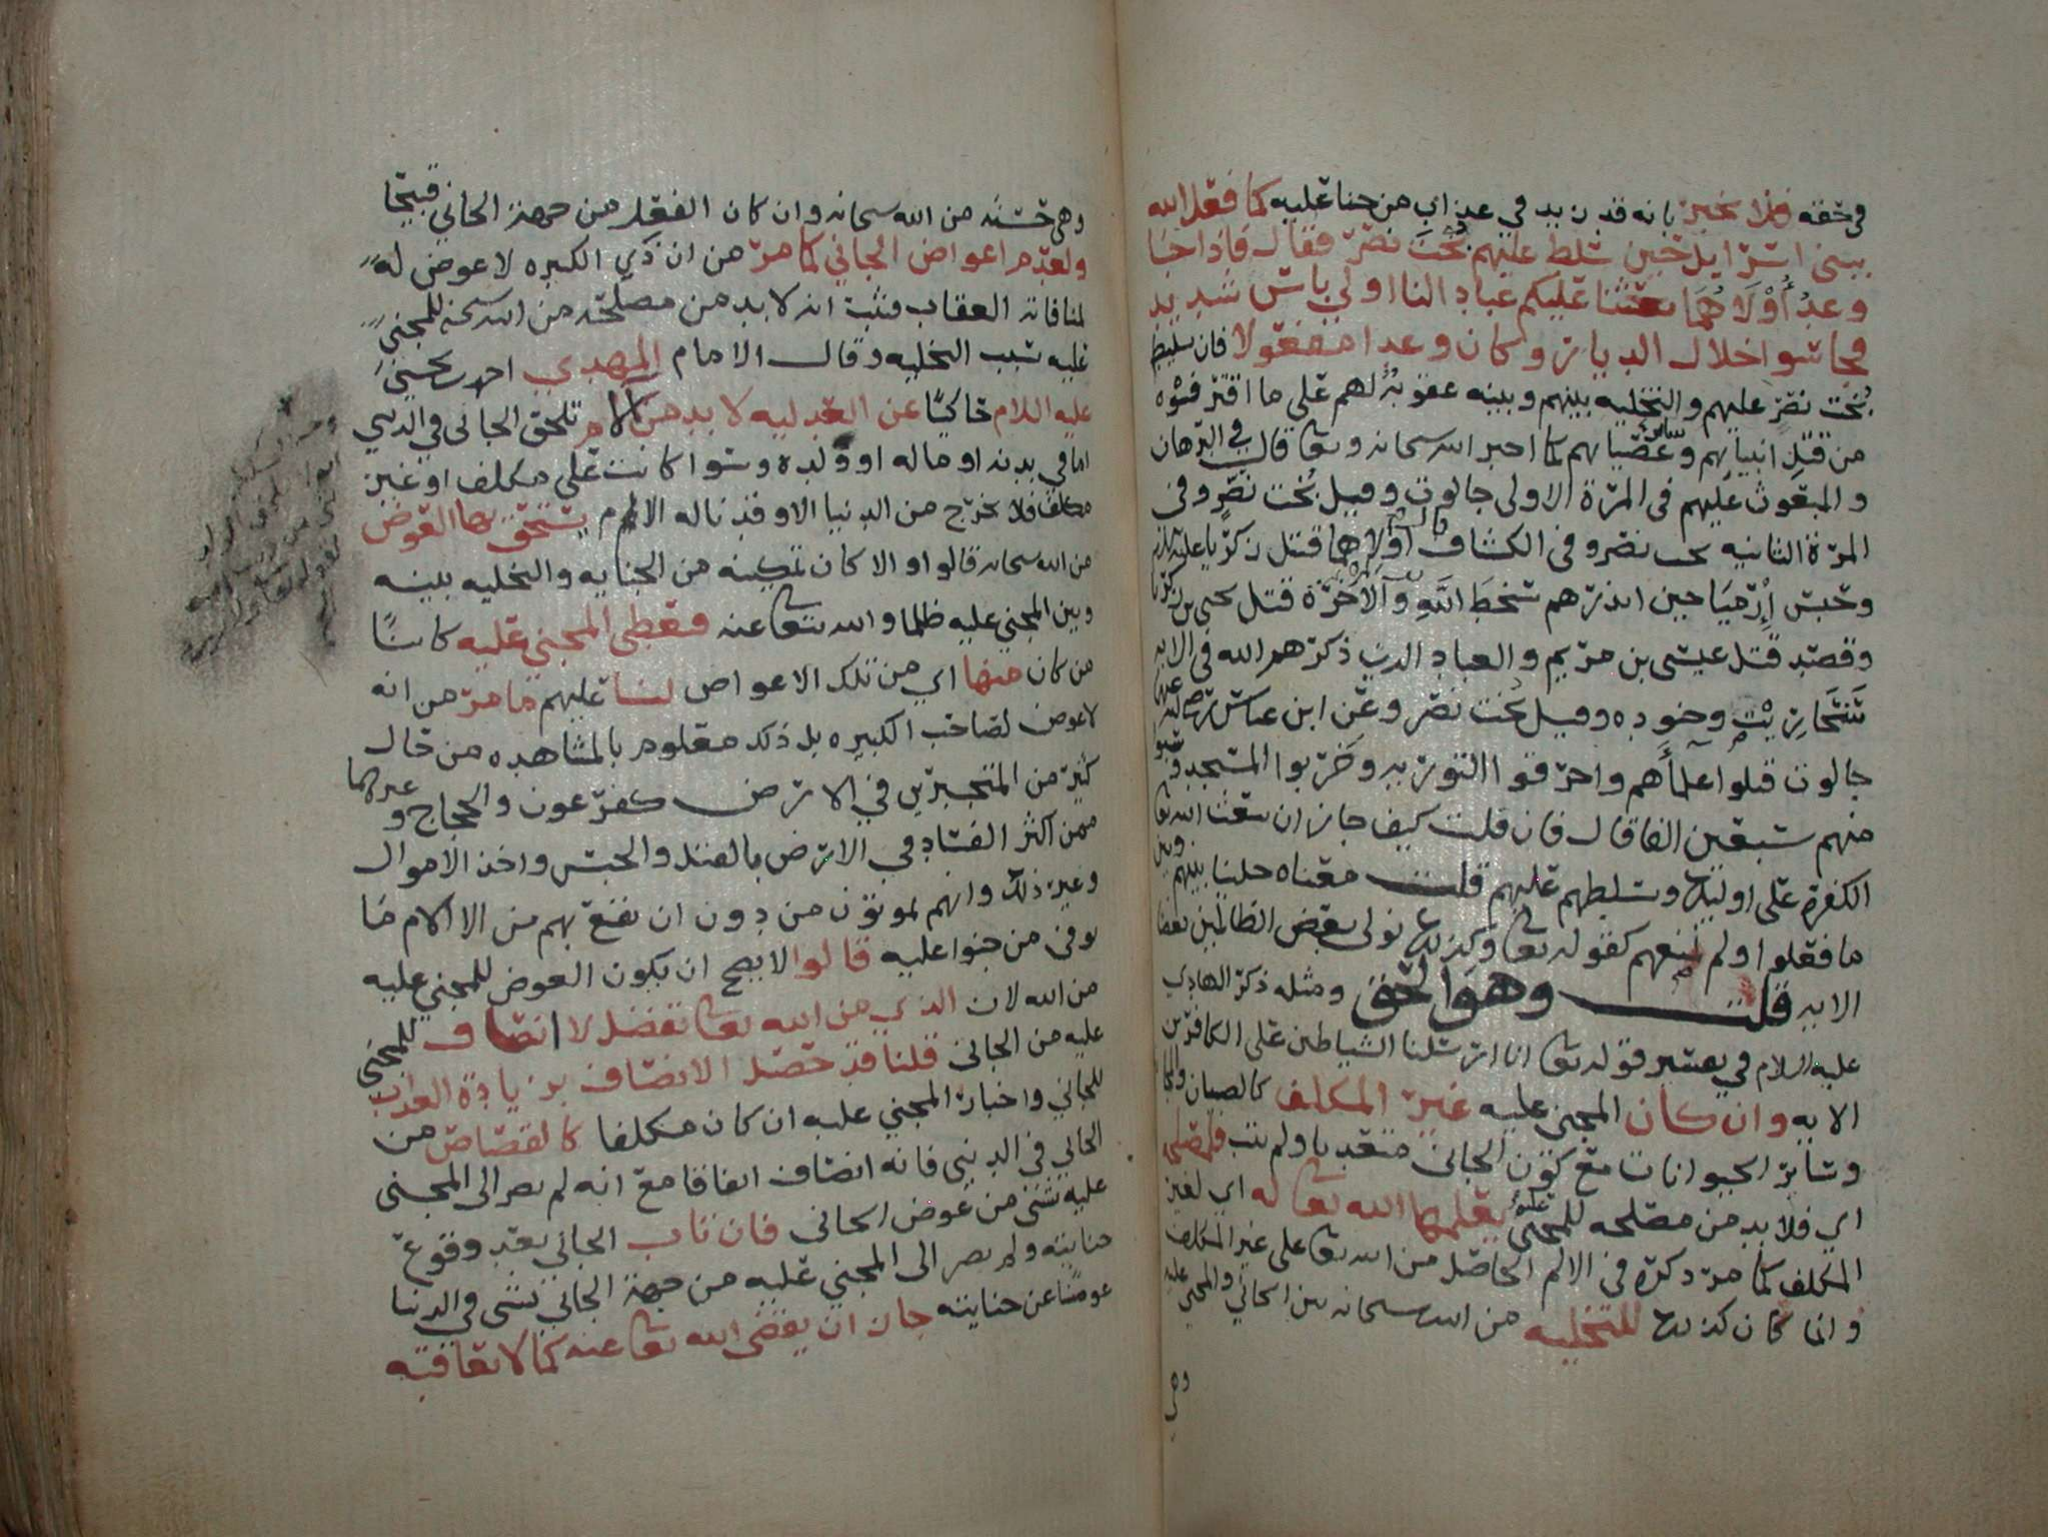 في حقه فلا يخبر بانه قد زيد في عذاب من جنا عليه كما فعل الله
ببني اسرايل حين سلط عليهم بخت نصر فقال فاذا جا
وعد أولاهما بعثنا عليكم عبادا لنا اولي باس شديد
فجاسوا خلال الديار وكان وعدا مفعولا فان تسليط
بخت نصر عليهم والتخليه بينهم وبينه عقوبة لهم على ما اقترفوه
من قتل انبيائهم وسائر عصيانهم كما اخبر الله سبحانه وتعا قال في البرهان
والمبعوث عليهم في المرة الاولى جالوت وقيل بخت نصر وفي
المرة الثانيه بخت نصر وفي الكشاف قال أولاهما قتل زكريا عليه السلام
وحبس إرميا حين انذرهم سخط الله والآخرة قتل يحيى بن زكريا
وقصد قتل عيسى بن مريم والعباد الذين ذكرهم الله في الايه
سنحاريب وجنوده وقيل بخت نصر وعن ابن عباس رضي الله عنهما
جالوت قتلوا علمأهم واحرقوا التوريه وخربوا المسجد وسبوا
منهم سبعين الفا قال فان قلت كيف جاز ان يبعث الله تعا
الكفرة على اوليك وتسليطهم عليهم قلت معناه خلينا بينهم وبين
ما فعلوا ولم نمنعهم كقوله تعا وكذلك نولي بعض الظالمين بعضا
الايه قلت وهو الحق ومثله ذكر الهادي
عليه السلام في تفسير قوله تعا انا ارسلنا الشياطين على الكافرين
الايه وان كان المجني عليه غير المكلف كالصبيان والمجانين
وسائر الحيوانات مع كون الجاني متعديا ولم يتب فلمصلحه
اي فلا بد من مصلحه للمجني عليه يعلمها الله تعا له اي لغير
المكلف كما مر ذكره في الالم الحاصل من الله تعا على غير المكلف
وانما كان كذلك للتخليه من الله سبحانه بين الجاني والمجني عليه
وهي
وهي حسنه من الله سبحانه وان كان الفعل من جهة الجاني قبيحا
ولعدم اعواض الجاني كما مر من ان ذي الكبيره لا عوض له
لمنافاته العقاب فثبت انه لا بد من مصلحة من الله سبحنه للمجني
عليه بسبب التخليه وقال الامام المهدي احمد بن يحيى
عليه السلام حاكيا عن العدليه لا بد من آلام تلحق الجاني في الدنيي
اما في بدنه او ماله او ولده وسوا كانت على مكلف او غير
مكلف فلا يخرج من الدنيا الا وقد ناله الالم يستحق بها العوض
من الله سبحانه قالوا والا كان تمكينه من الجنايه والتخليه بينه
وبين المجني عليه ظلما والله يتعا عنه فيعطى المجني عليه كائنا
من كان منها اي من تلك الاعواض لنا عليهم ما مر من انه
لا عوض لصاحب الكبيره بل ذلك معلوم بالمشاهده من حال
كثير من المتجبرين في الارض كفرعون والحجاج وغيرهما
ممن اكثر الفساد في الارض بالقتل والحبس واخذ الاموال
وغير ذلك وانهم يموتون من دون ان يقع بهم من الالام ما
يوفي من جنوا عليه قالوا لا يصح ان يكون العوض للمجني عليه
من الله لان الذي من الله تعا تفضل لا انصاف للمجني
عليه من الجاني قلنا قد حصل الانصاف بزيادة العذاب
للجاني واخباره المجني عليه ان كان مكلفا كالقصاص من
الجاني في الدنيى فانه انصاف اتفاقا مع انه لم يصر الى المجني
عليه شي من عوض الجاني فان تاب الجاني بعد وقوع
جنايته ولم يصر الى المجني عليه من جهة الجاني شي في الدنيا
عوضا عن جنايته جاز ان يقضي الله تعا عنه كما لا يعاقبه